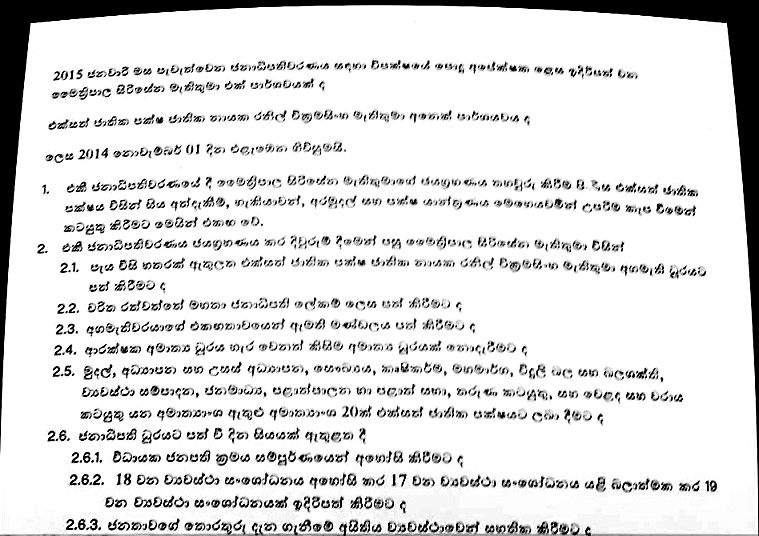 2015 ජනවාරි මස පැවැත්වෙන ජනාධිපතිවරණය සඳහා විපක්ෂයේ පොදු අපේක්ෂක ලෙස ඉදිරිපත් වන
මෛත්‍රීපාල සිරිසේන මැතිතුමා එක් පාර්ශවයක් ද
එක්සත් ජාතික පක්ෂ ජාතික නායක රනිල් වික්‍රමසිංහ මැතිතුමා අනෙක් පාර්ශයවය ද
ලෙස 2014 නොවැම්බර් 01 දින එළැඹෙන ගිවිසුමයි.
1. එකී ජනාධිපතිවරණයේ දී මෛත්‍රීපාල සිරිසේන මැතිතුමාගේ ජයග්‍රහණය තහවුරු කිරීම පිණිස එක්සත් ජාතික
පක්ෂය විසින් සිය අත්දැකීම්, හැකියාවන්, අරමුදල් සහ පක්ෂ යාන්ත්‍රණය මෙහෙයවමින් උපරිම කැප වීමෙන්
කටයුතු කිරීමට මෙයින් එකඟ වේ.
2. එකී ජනාධිපතිවරණය ජයග්‍රහණය කර දිවුරුම් දීමෙන් පසු මෛත්‍රීපාල සිරිසේන මැතිතුමා විසින්
2.1. පැය විසි හතරක් ඇතුලත එක්සත් ජාතික පක්ෂ ජාතික නායක රනිල් වික්‍රමසිංහ මැතිතුමා අගමැති ධූරයට
පත් කිරීමට ද
2.2. චරිත රත්වත්තේ මහතා ජනාධිපති ලේකම් ලෙස පත් කිරීමට ද
2.3. අගමැතිවරයාගේ එකඟතාවයෙන් ඇමති මණ්ඩලය පත් කිරීමට ද
2.4. ආරක්ෂක අමාත්‍ය ධූරය හැර වෙනත් කිසිම අමාත්‍ය ධූරයක් නොදැරීමට ද
2.5. මුදල්, අධ්‍යාපන සහ උසස් අධ්‍යාපන, සෞඛ්‍යය, කෘෂිකර්ම, මහාමාර්ග, විදුලි බල සහ බලශක්ති,
ව්‍යවස්ථා සම්පාදන, ජනමාධ්‍ය, පළාත්පාලන හා පළාත් සභා, තරුණ කටයුතු, සහ වෙළද සහ වරාය
කටයුතු යන අමාත්‍යාංශ ඇතුළු අමාත්‍යාංශ 20ක් එක්සත් ජාතික පක්ෂයට ලබා දීමට ද
2.6. ජනාධිපති ධූරයට පත් වී දින සියයක් ඇතුළත දී
2.6.1. විධායක ජනපති ක්‍රමය සම්පූර්ණයෙන් අහෝසි කිරීමට ද
2.6.2. 18 වන ව්‍යවස්ථා සංශෝධනය අහෝසි කර 17 වන ව්‍යවස්ථා සංශෝධනය යළි බලාත්මක කර 19
වන ව්‍යවස්ථා සංශෝධනයක් ඉදිරිපත් කිරීමට ද
2.6.3. ජනතාවගේ තොරතුරු දැන ගැනීමේ අයිතිය ව්‍යවස්ථාවෙන් සහතික කිරීමට ද